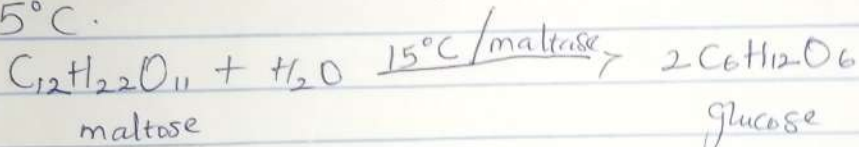 5°C.
C₁₂H₂₂O₁₁ + H₂O 15°C/maltase> 2C₆H₁₂O₆
maltose glucose